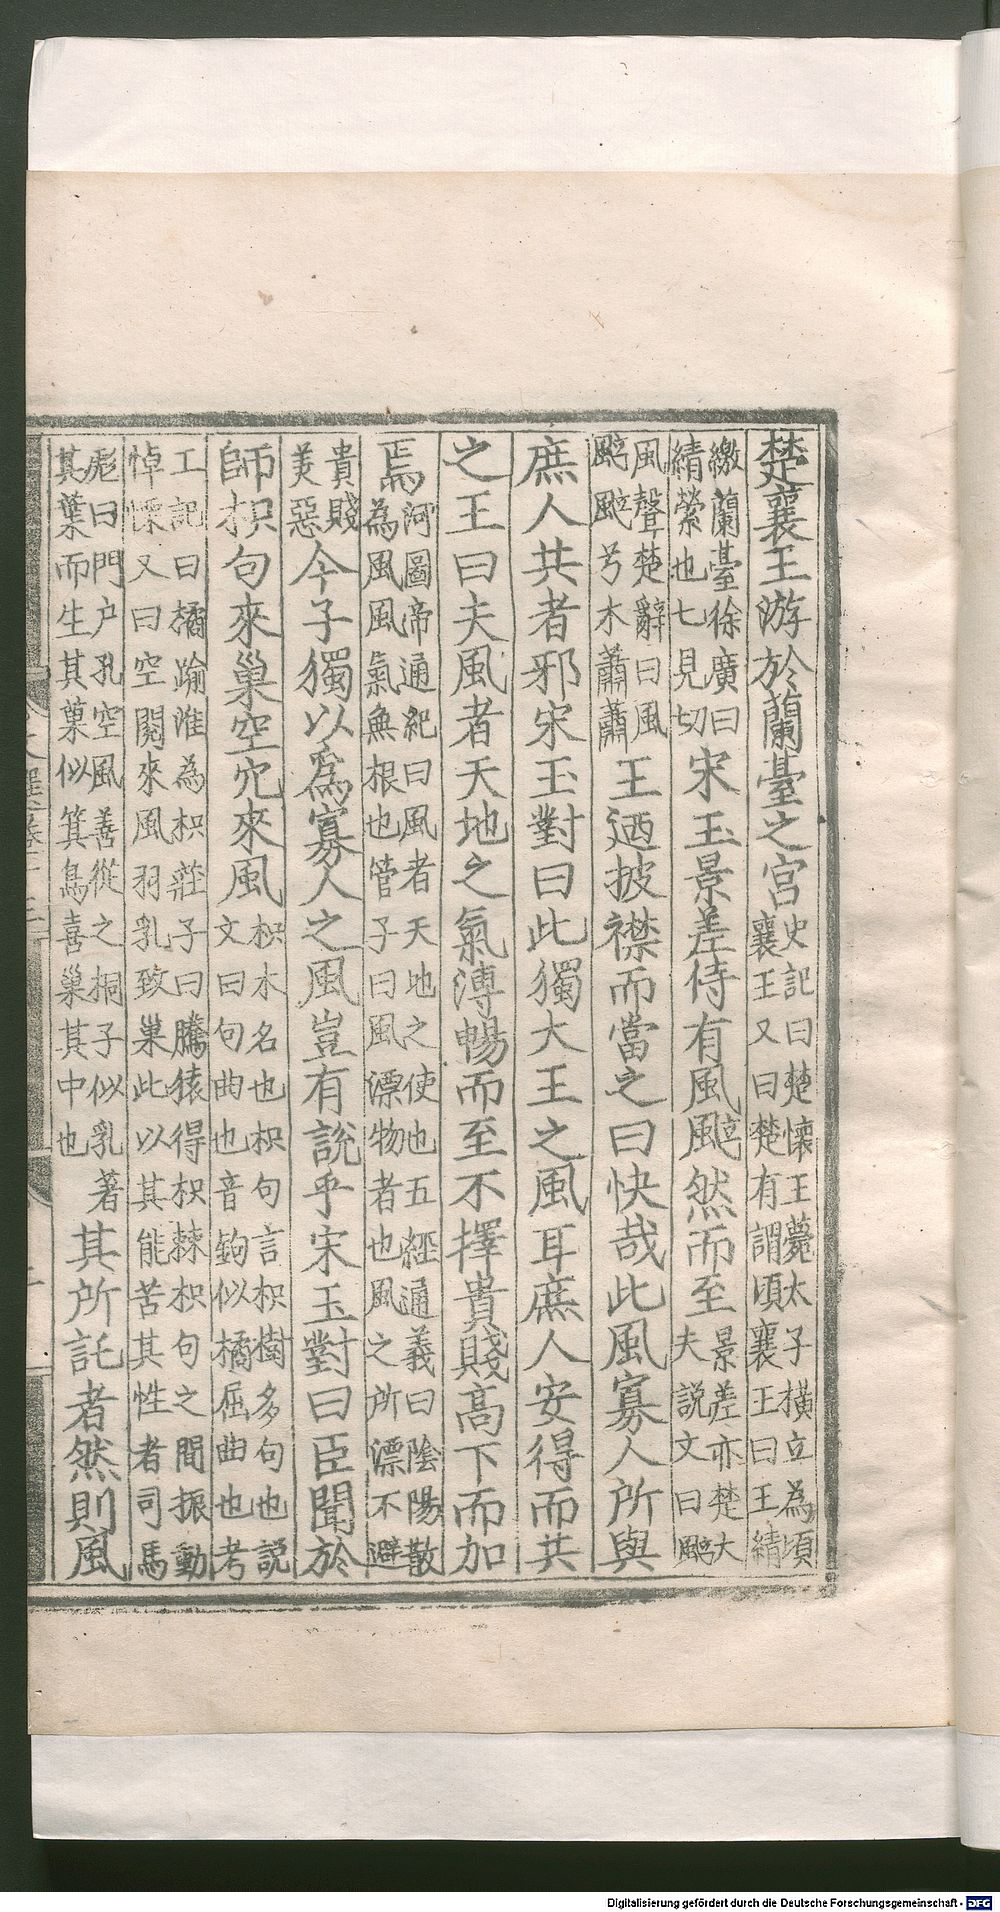 楚襄王游於蘭臺之宮史記曰楚懷王薨太子橫立為頃襄王又曰楚有謂頃襄王曰王績
繳蘭臺徐廣曰績縈也七見切宋玉景差侍有風颯然而至景差亦楚大夫說文曰颯
風聲楚辭曰風颯颯兮木蕭蕭王迺披襟而當之曰快哉此風寡人所與
庶人共者邪宋玉對曰此獨大王之風耳庶人安得而共
之王曰夫風者天地之氣溥暢而至不擇貴賤高下而加
焉河圖帝通紀曰風者天地之使也五經通義曰陰陽散為風風氣無根也管子曰風漂物者也風之所漂不避
貴賤美惡今子獨以為寡人之風豈有說乎宋玉對曰臣聞於
師枳句來巢空穴來風枳木名也枳句言枳樹多句也說文曰句曲也音鉤似橘屈曲也考
工記曰橘踰淮為枳莊子曰騰猿得枳棘枳句之間振動悼慄又曰空閱來風羽乳致巢此以其能苦其性者司馬
彪曰門户孔空風善從之桐子似乳著其葉而生其菓似箕鳥喜巢其中也其所託者然則風
Digitalisierung gefördert durch die Deutsche Forschungsgemeinschaft - DFG